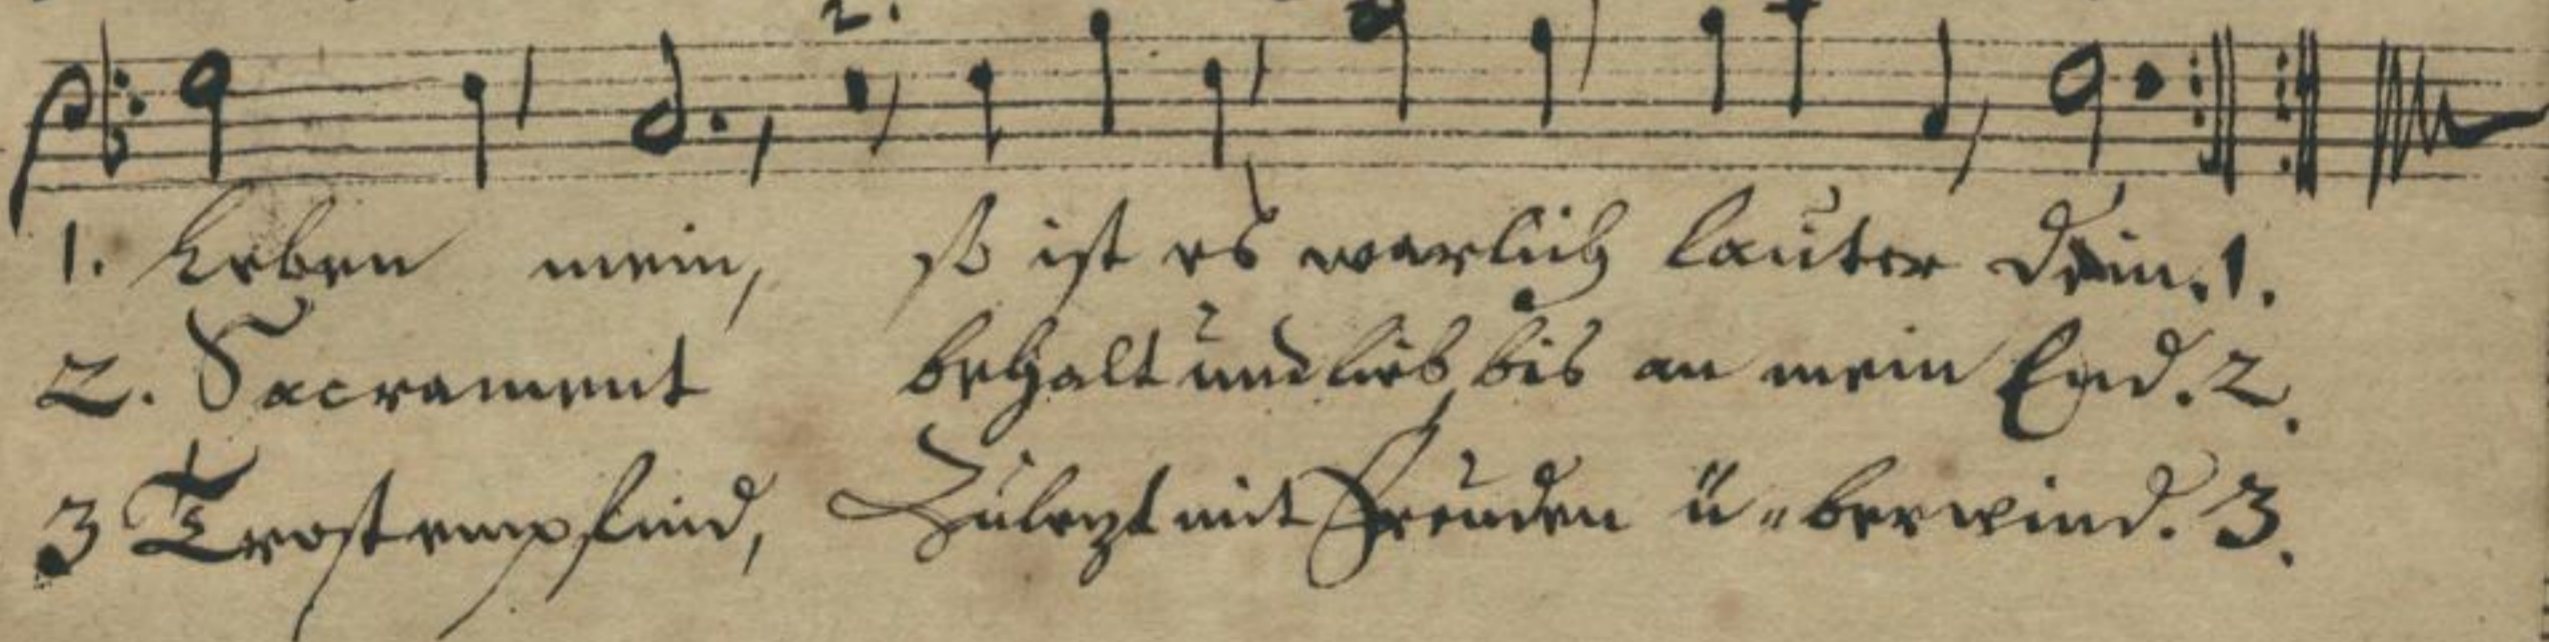 2.
1. Leben mein, so ist es warlich lauter dein. 1.
2. Sacrament behalt und lieb bis an mein End. 2.
3 Trost empfind, Zulezt mit Freuden ü-berwind. 3.